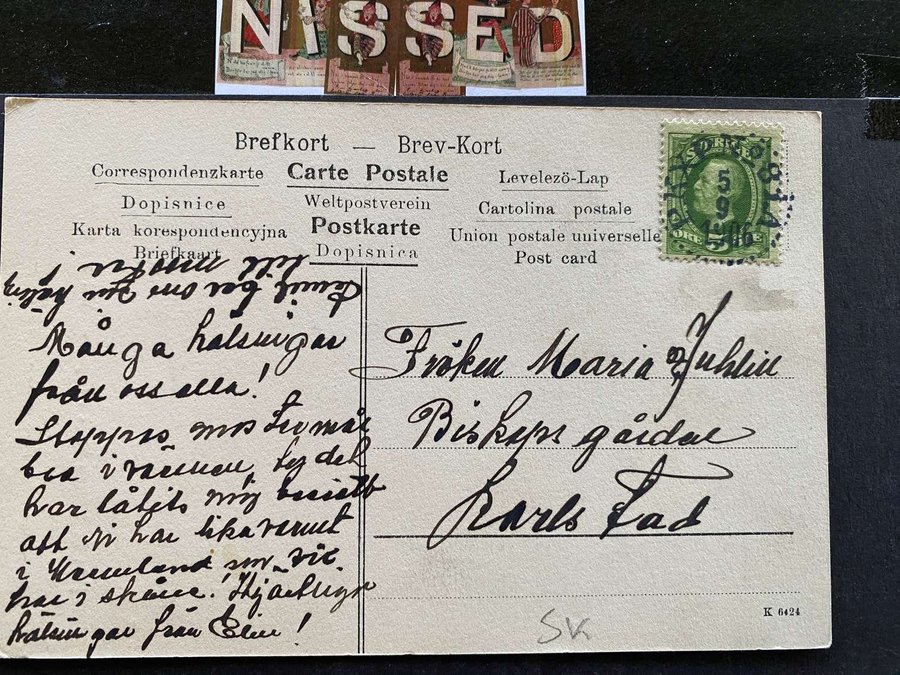 NISSED
Brefkort — Brev-Kort
Correspondenzkarte Carte Postale Levelező-Lap
Dopisnice Weltpostverein Cartolina postale
Karta korespondencyjna Postkarte Union postale universelle
Briefkaart Dopisnica Post card
5
9
1906
Många hälsningar
från oss alla!
Hoppas mos Fer mår
bra i värmen, ty det
har låtits mig berätt
att Ni har lika varmt
i Wermland som vi
har i skåne! Hjärtliga
hälsningar från Elin!
Fröken Maria Juhlin
Biskops gården
Karlstad
K 6424
SK